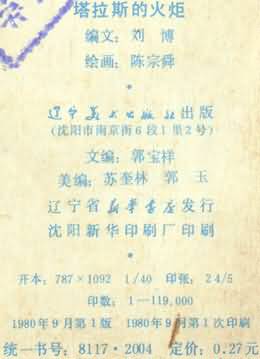 塔拉斯的火炬
编文：刘 博
绘画：陈宗舜
辽宁美术出版社出版
（沈阳市南京街6段1里2号）
文编：郭宝祥
美编：苏奎林 郭 玉
辽宁省新华书店发行
沈阳新华印刷厂印刷
开本：787×1092 1/40 印张：2 4/5
印数：1—119,000
1980年9月第1版 1980年9月第1次印刷
统一书号：8117·2004 定价：0.27元